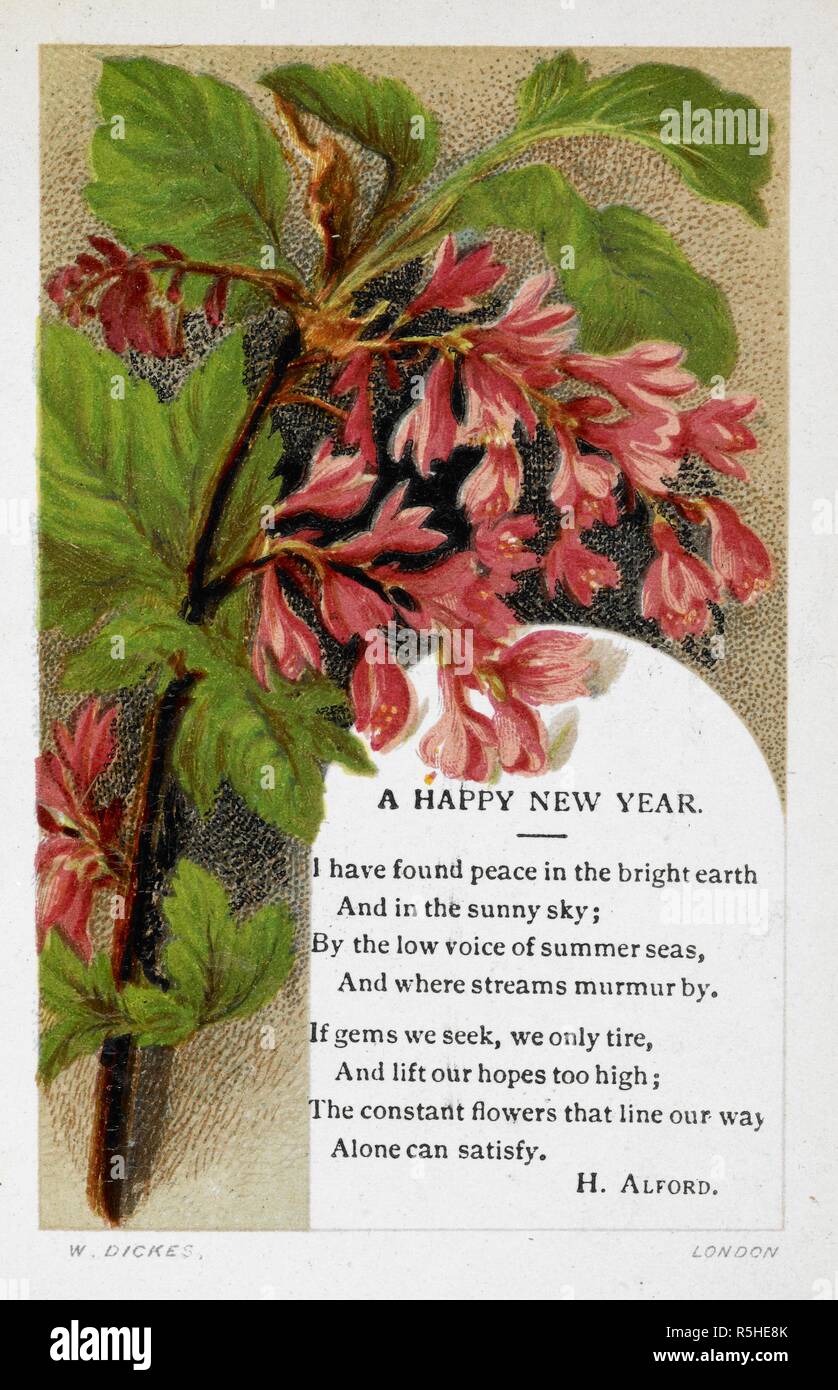 A HAPPY NEW YEAR.
I have found peace in the bright earth
And in the sunny sky;
By the low voice of summer seas,
And where streams murmur by.
If gems we seek, we only tire,
And lift our hopes too high;
The constant flowers that line our way
Alone can satisfy.
H. ALFORD.
W. DICKES.
LONDON
alamy
Image ID: R5HE8K
www.alamy.com